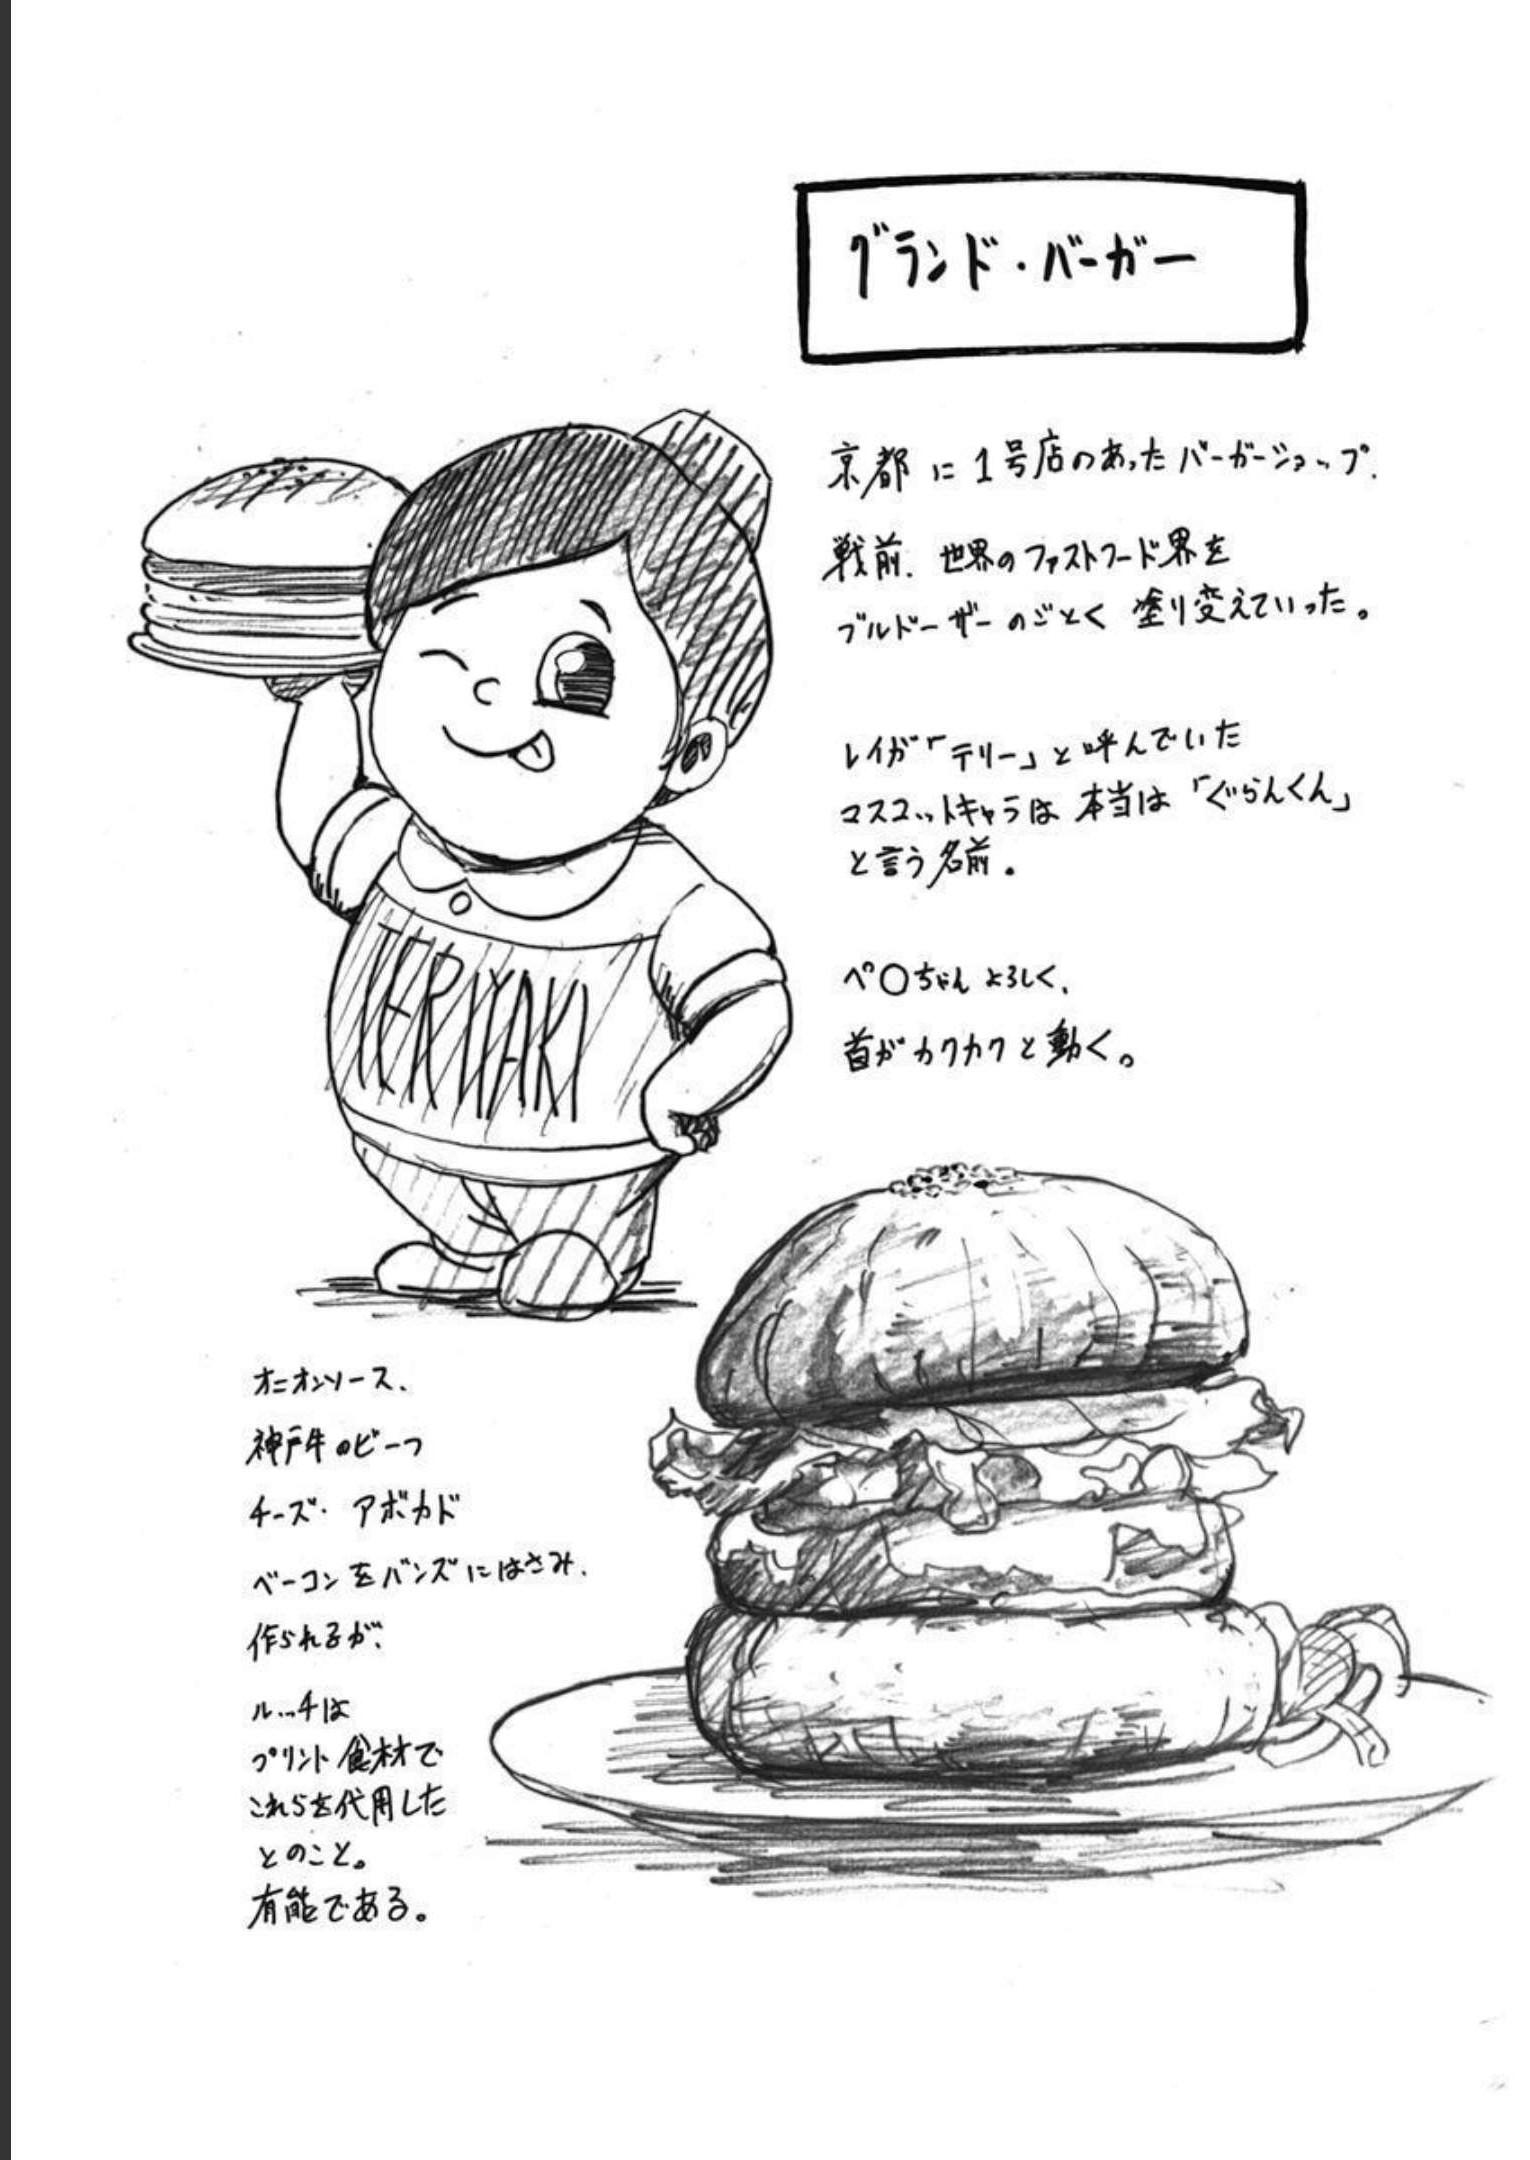 グランド・バーガー
京都に1号店のあったバーガーショップ.
戦前.世界のファストフード界を
ブルドーザーのごとく塗り変えていった。
レイが「テリー」と呼んでいた
マスコットキャラは本当は「ぐらんくん」
と言う名前.
ペ○ちゃんよろしく、
首がカクカクと動く。
TERIYAKI
オニオンソース、
神戸牛のビーフ
チーズ・アボカド
ベーコンをバンズにはさみ、
作られるが、
ルッチは
プリント食材で
これらを代用した
とのこと。
有能である。